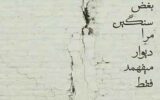 بغض
سنگین
مرا
دیوار
میفهمد
فقط